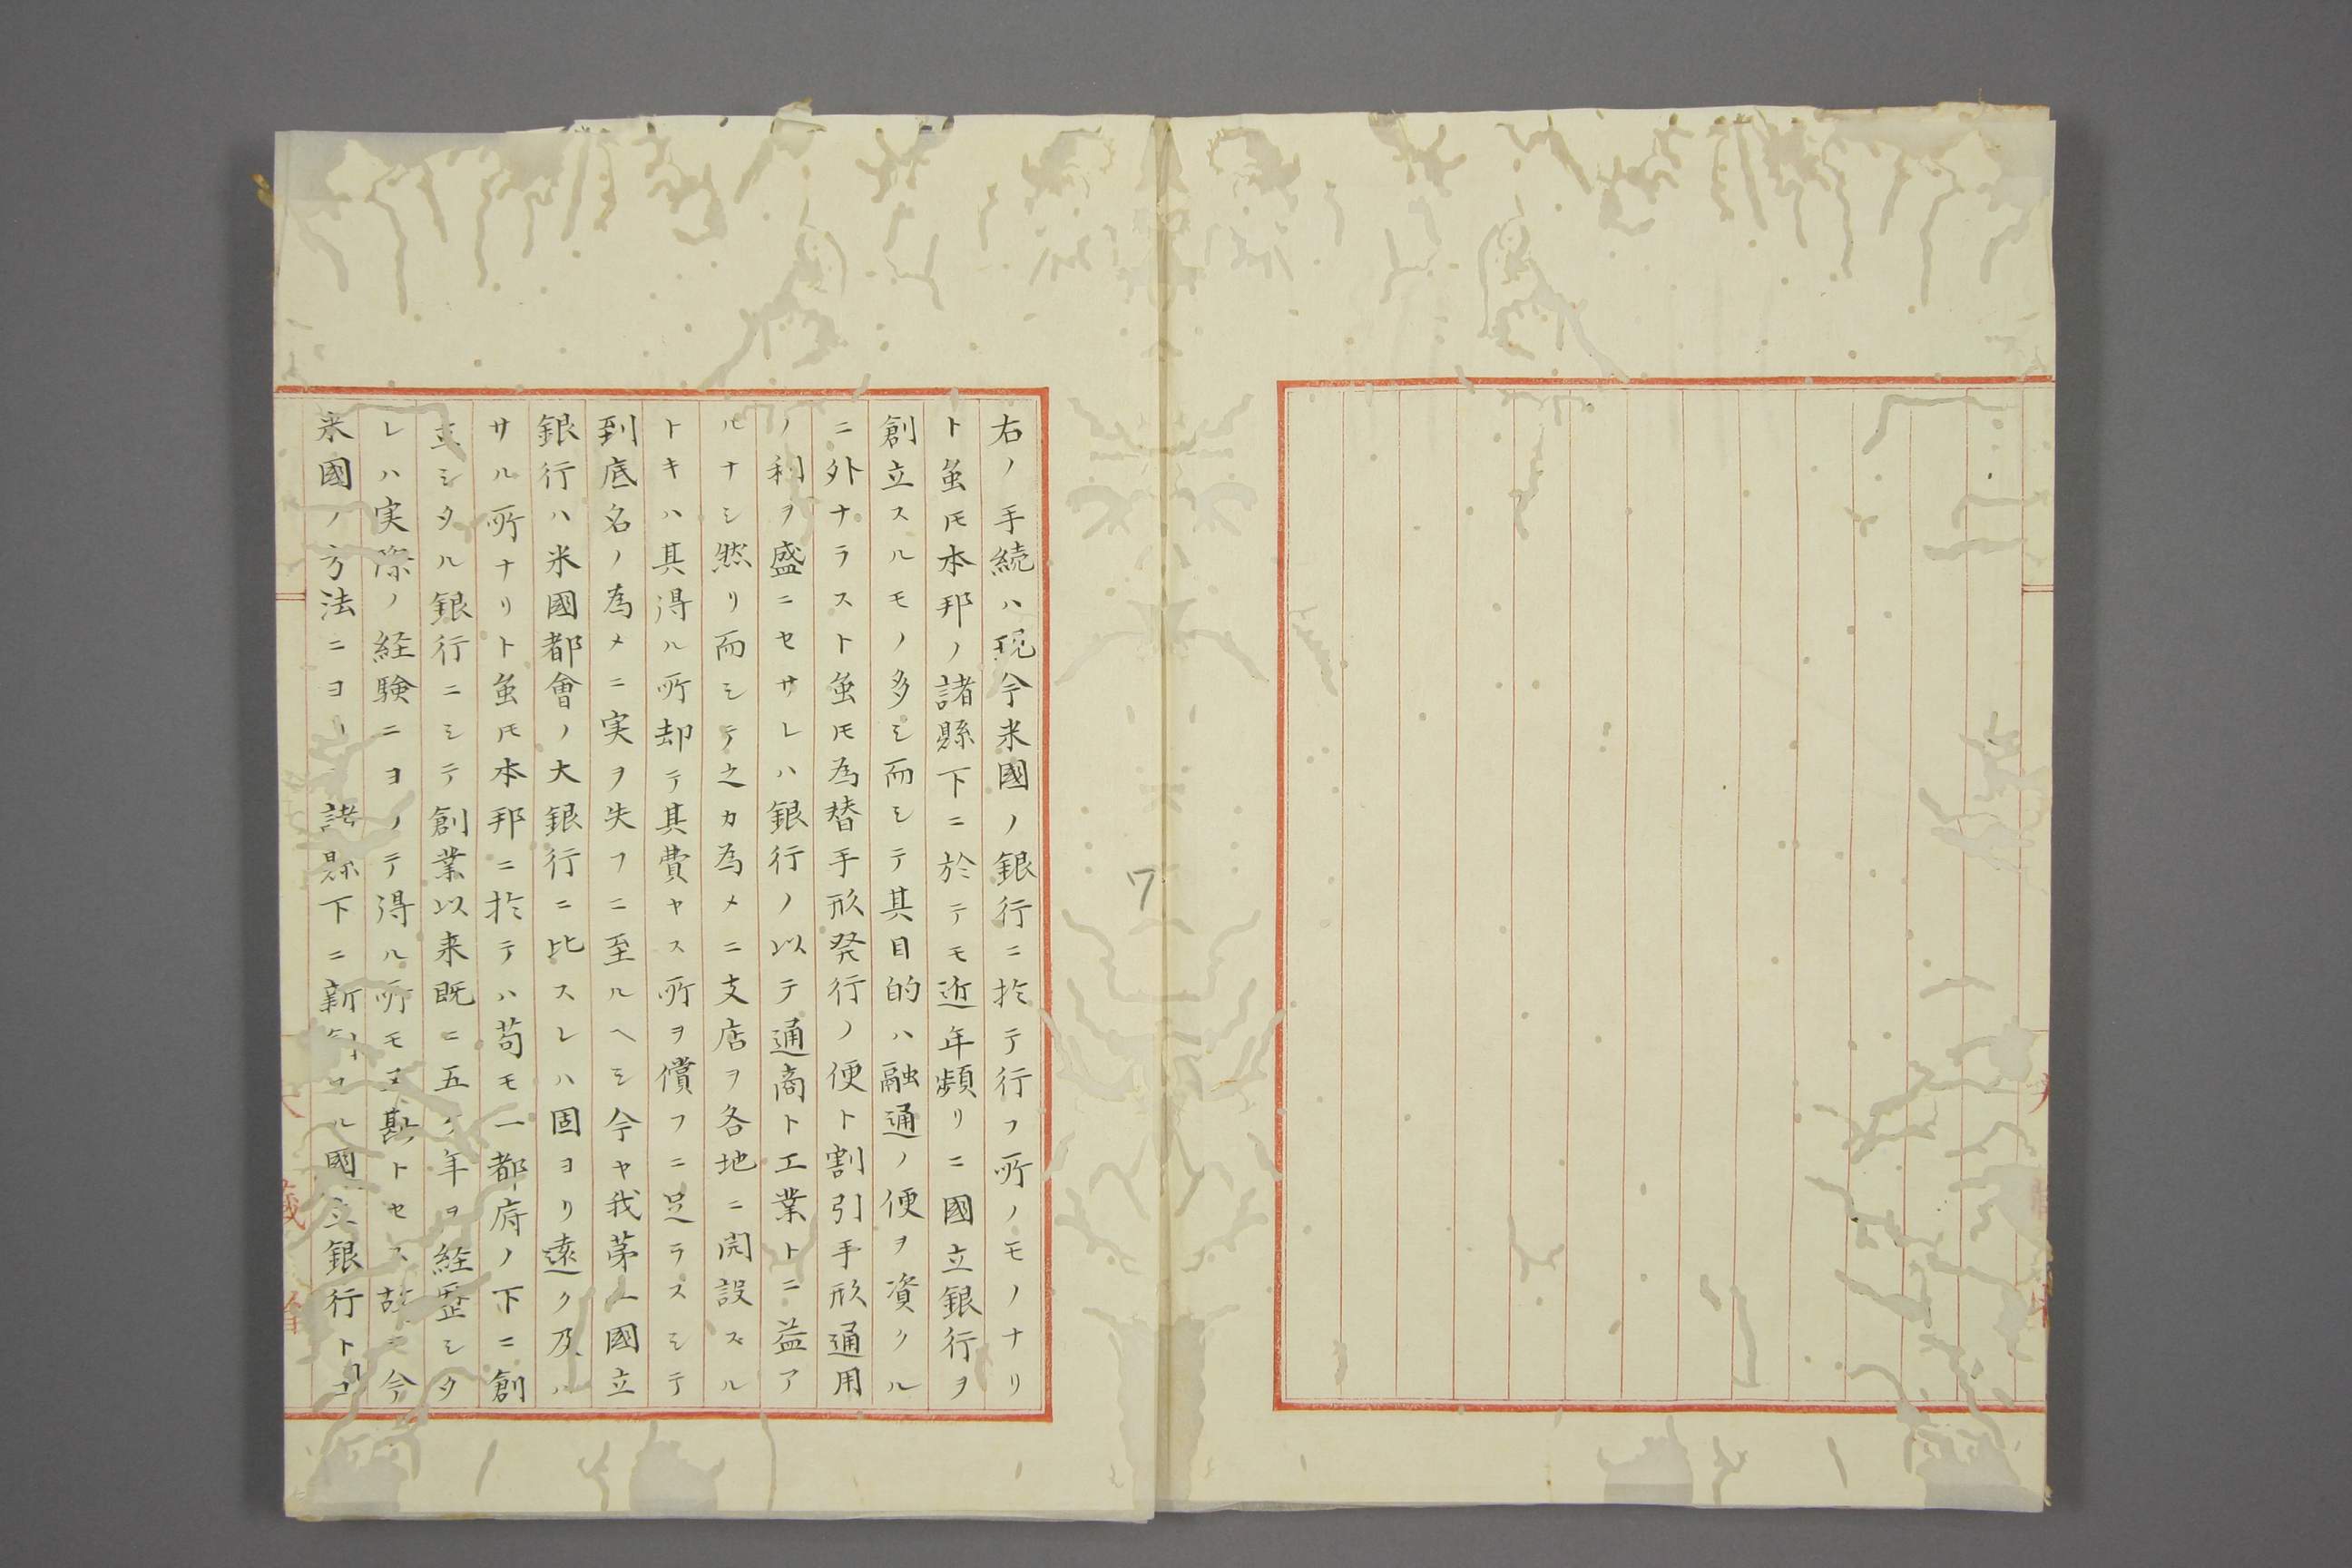 右ノ手続ハ現今米國ノ銀行ニ於テ行フ所ノモノナリ
ト虽𪜈本邦ノ諸縣下ニ於テモ近年頻リニ國立銀行ヲ
創立スルモノ多シ而シテ其目的ハ融通ノ便ヲ資クル
ニ外ナラスト虽𪜈為替手形発行ノ便ト割引手形通用
ノ利ヲ盛ニセサレハ銀行ノ以テ通商ト工業トニ益ア
ルナシ然リ而シテ之カ為メニ支店ヲ各地ニ開設スル
トキハ其得ル所却テ其費ヤス所ヲ償フニ足ラスシテ
到底名ノ為メニ実ヲ失フニ至ルヘシ今ヤ我茅一國立
銀行ハ米國都會ノ大銀行ニ比スレハ固ヨリ遠ク及ハ
サル所ナリト虽𪜈本邦ニ於テハ苟モ一都府ノ下ニ創
立シタル銀行ニシテ創業以来既ニ五ケ年ヲ経歴シタ
レハ実際ノ経験ニヨリテ得ル所モ又尠トセス故ニ今
米國ノ方法ニヨリ諸縣下ニ新創スル國立銀行ト
7